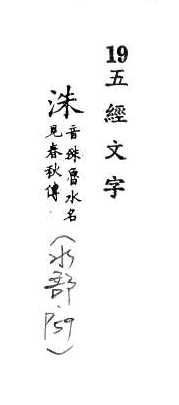 19五經文字
洙音殊魯水名
見春秋傳
(水部P.59)